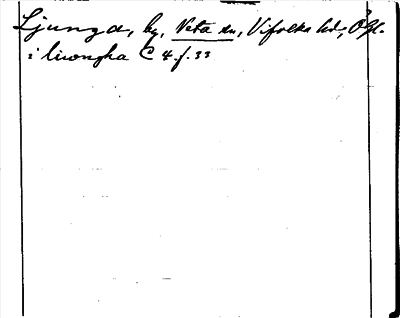 Ljunga, by, Veta sn, Vifolka hd, Ögl.
i liwongha C 4 f. 33